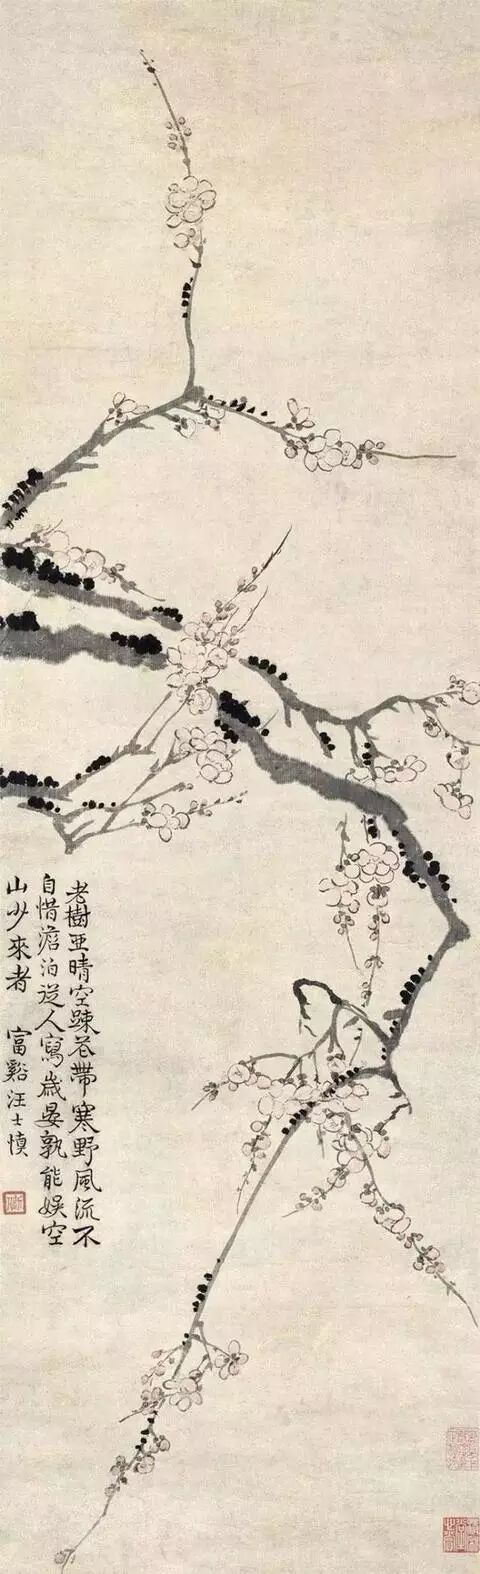 老樹亚晴空踈花帶寒野風流不
自惜澹泊従人寫歲晏孰能娛空
山少來者　富谿汪士慎